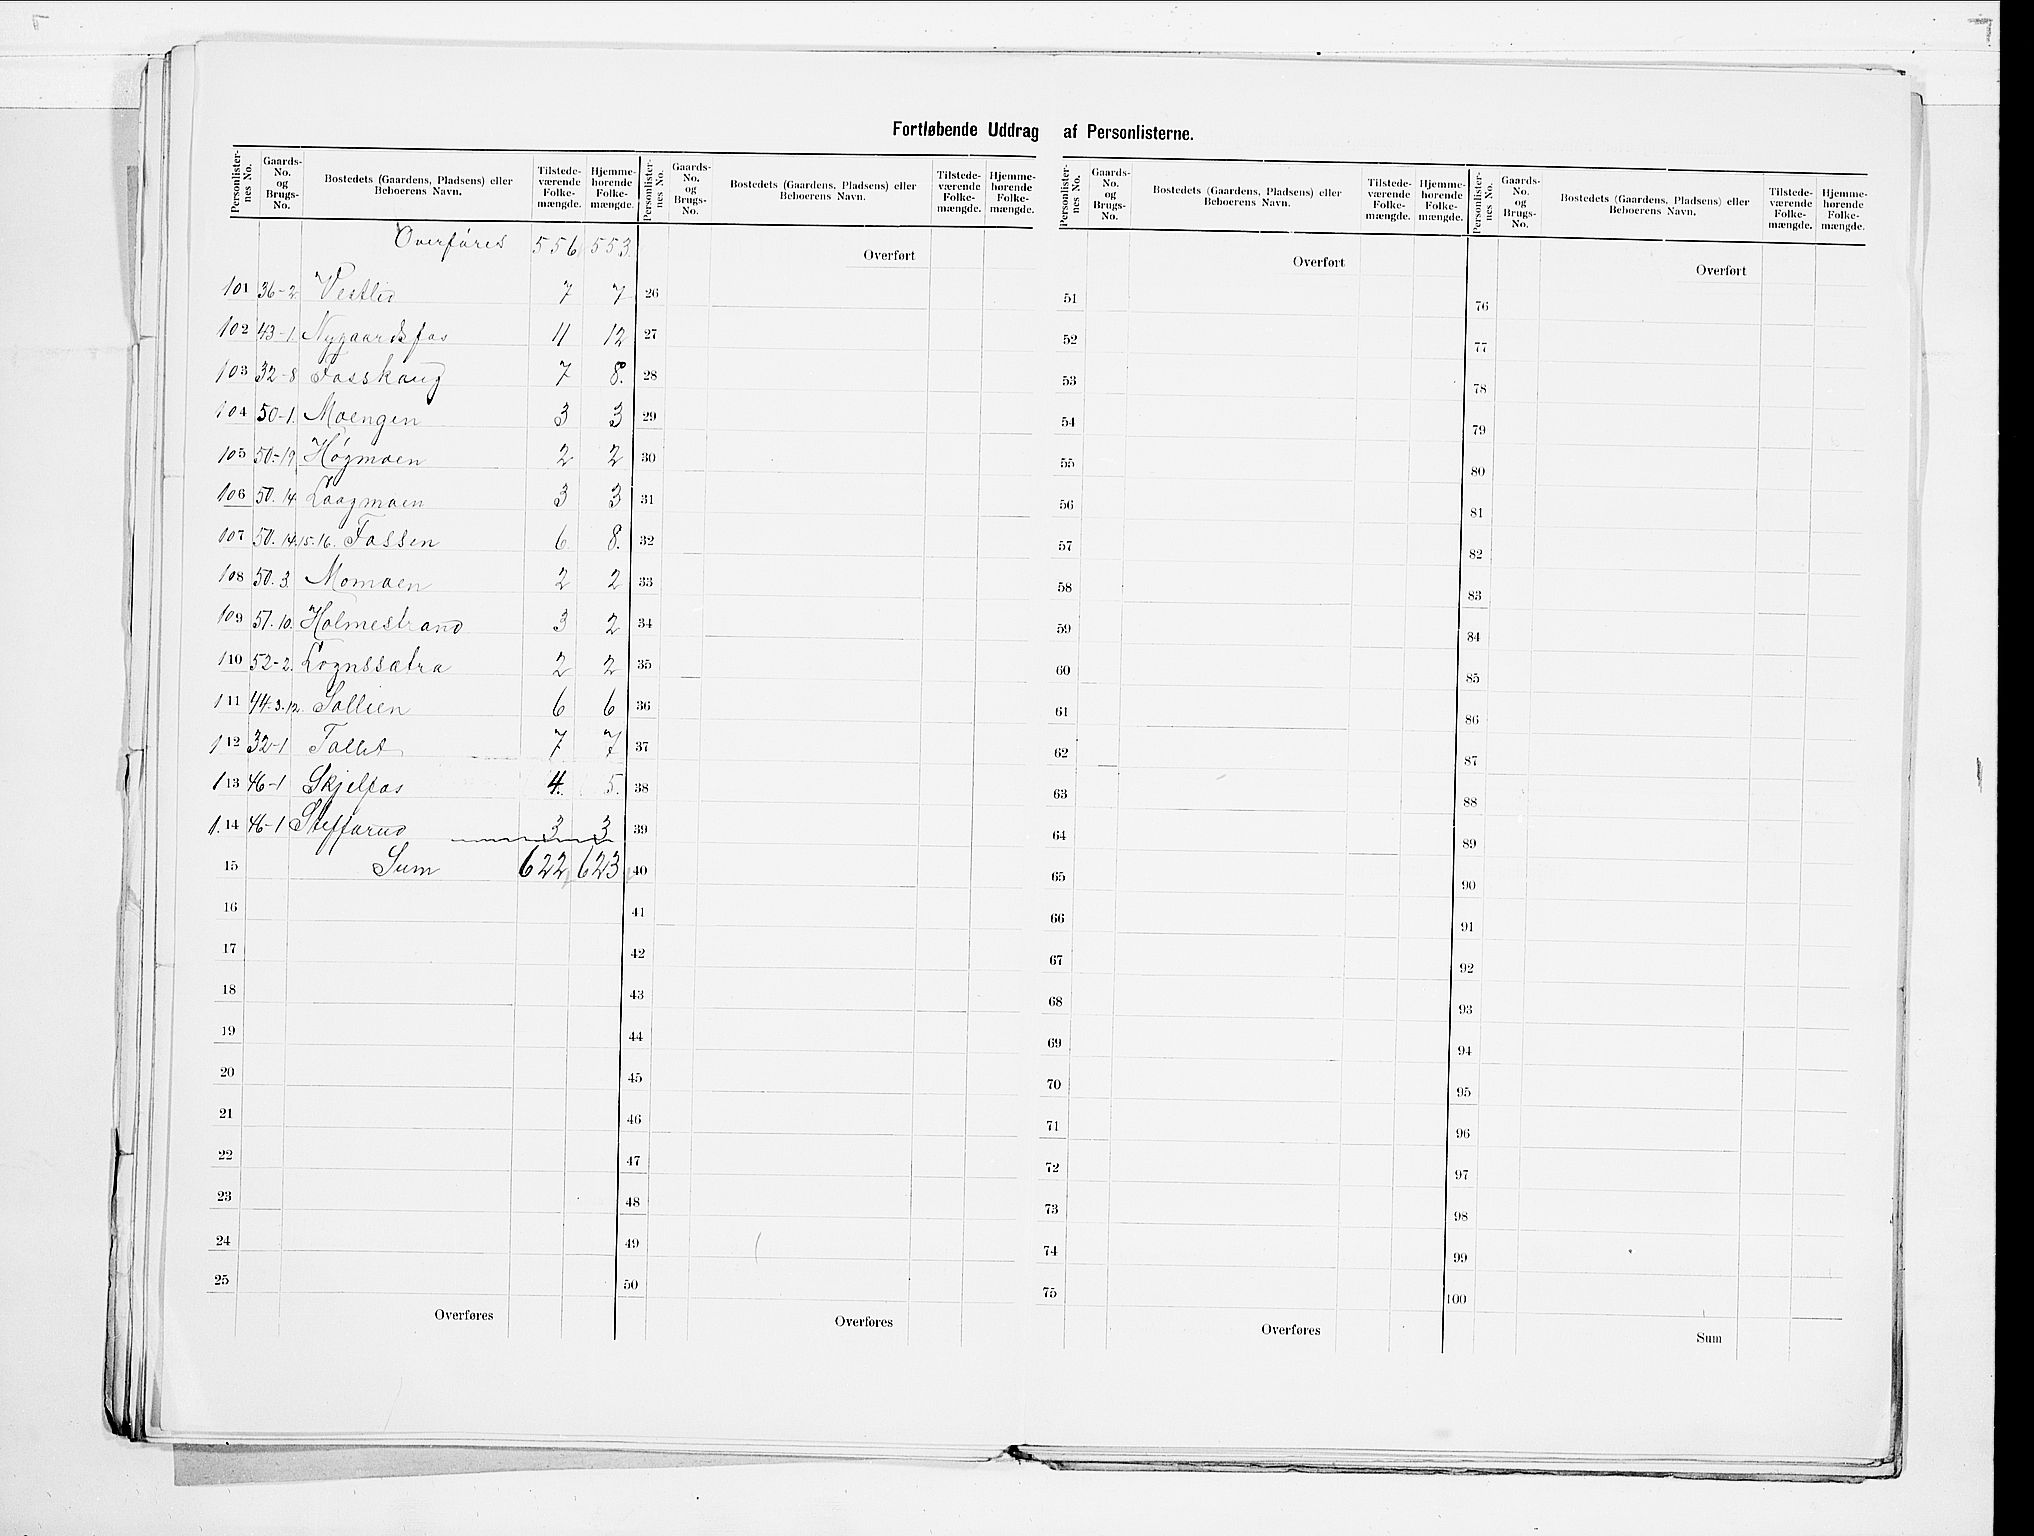 Fortløbende Uddrag af Personlisterne.
Personlisternes No. Gaards-No. og Brugs-No. Bostedets (Gaardens, Pladsens) eller Beboerens Navn. Tilstedeværende Folkemængde. Hjemmehørende Folkemængde.
Overføres 556 553
101 36-2 Vestlid 7 7
102 43-1 Nygaardsfos 11 12
103 32-8 Fosskaug 7 8.
104 50-1. Moengen 3 3
105 50-19 Høgmoen 2 2
106 50.14. Laagmoen 3 3
107 50.14.15.16. Fossen 6 8.
108 50.3. Momoen 2 2
109 51.10. Holmestrand 3 2
110 52-2. Lognssætra 2 2
111 44.3.12. Sollien 6 6
112 32-1 Tollit 7 7
113 46-1 Skjelfos 4. 5.
1.14 46-1 Steffarud 3 3
15 Sum 622 623
16
17
18
19
20
21
22
23
24
25
Overføres
Personlisternes No. Gaards-No. og Brugs-No. Bostedets (Gaardens, Pladsens) eller Beboerens Navn. Tilstedeværende Folkemængde. Hjemmehørende Folkemængde.
Overført
26
27
28
29
30
31
32
33
34
35
36
37
38
39
40
41
42
43
44
45
46
47
48
49
50
Overføres
Personlisternes No. Gaards-No. og Brugs-No. Bostedets (Gaardens, Pladsens) eller Beboerens Navn. Tilstedeværende Folkemængde. Hjemmehørende Folkemængde.
Overført
51
52
53
54
55
56
57
58
59
60
61
62
63
64
65
66
67
68
69
70
71
72
73
74
75
Overføres
Personlisternes No. Gaards-No. og Brugs-No. Bostedets (Gaardens, Pladsens) eller Beboerens Navn. Tilstedeværende Folkemængde. Hjemmehørende Folkemængde.
Overført
76
77
78
79
80
81
82
83
84
85
86
87
88
89
90
91
92
93
94
95
96
97
98
99
100
Sum